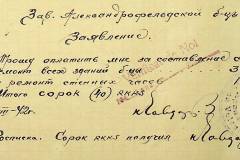 Зав. Александрофельдской б-цы
Заявление.
Прошу оплатить мне за составление с
ремонт всех зданий б-цы З
и ремонт стенных часов
Итого сорок (40) RKKS
III-42г.
Росписка. Сорок RKKS получил